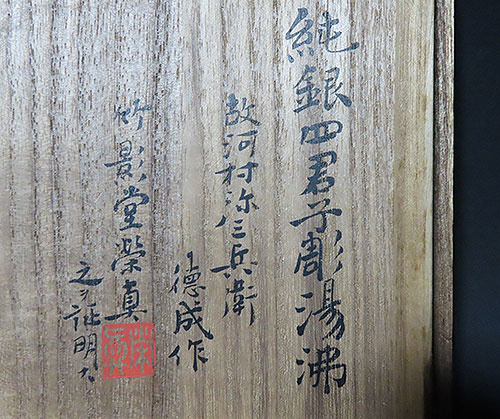 純銀四君子彫湯沸
故河村弥三兵衛
徳成作
竹影堂榮真
之を証明す